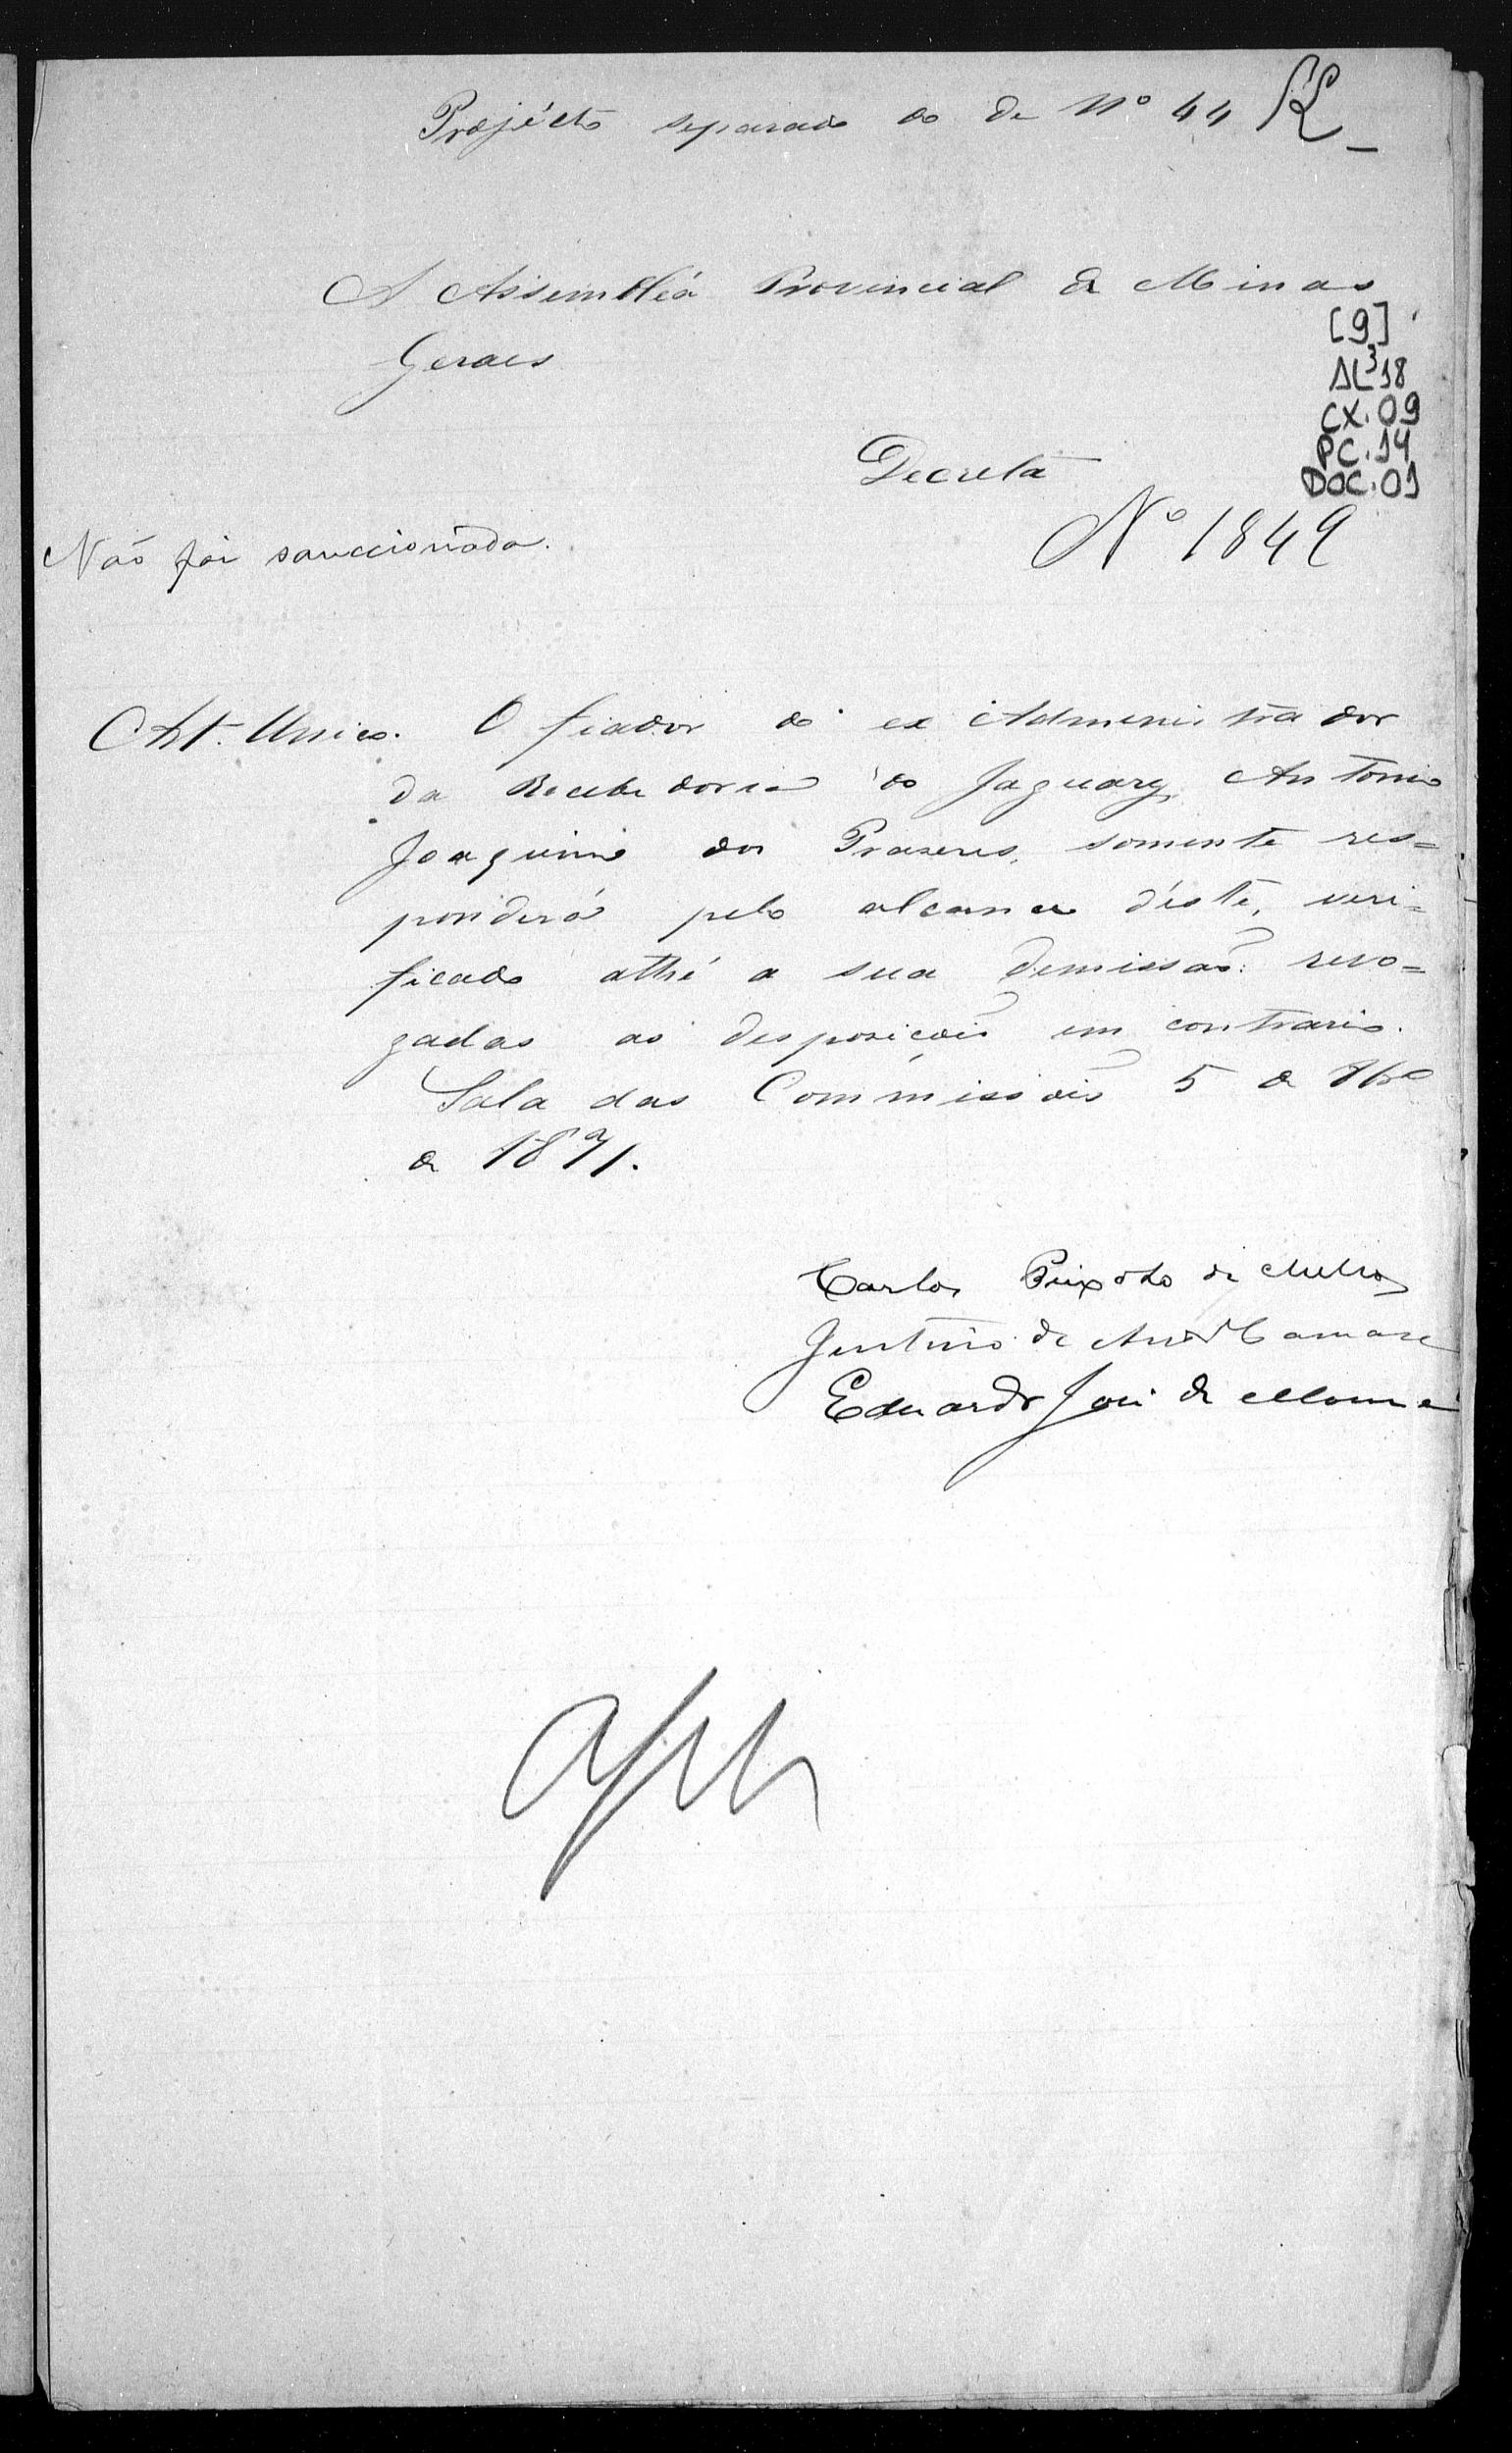 Projécto separado do de Nº 44
A Assembléa Provincial de Minas
[9]
Geraes
AL³18
CX.09
PC.14
DOC.01
Decreta
Nº 1849
Não foi sanccionada.
Art. Unico. O fiador do ex Admenistrador
da Recebedoria do Jaguary, Antonio
Joaquim dos Praseres, somente res=
ponderá pelo alcance déste, veri=
ficado athé a sua demissão: revo=
gadas as desposições em contrario.
Sala das Commissões 5 de
de 1871.
Carlos Peixoto de Mello
de Camara
Eduardo José de Moura